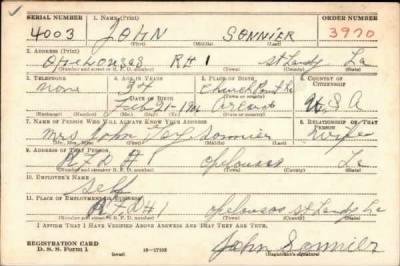 SERIAL NUMBER 1. NAME (Print) ORDER NUMBER
4003 JOHN SONNIER 3970
(First) (Middle) (Last)
2. ADDRESS (Print)
Opelousas Rt 1 St Landry La
(Number and street or R. F. D. number) (Town) (County) (State)
3. TELEPHONE 4. AGE IN YEARS 5. PLACE OF BIRTH 6. COUNTRY OF CITIZENSHIP
none 34 Church Point La
DATE OF BIRTH (Town or county)
Feb 21-1906 U.S.A
(Mo.) (Day) (Yr.) (State or country)
7. NAME OF PERSON WHO WILL ALWAYS KNOW YOUR ADDRESS 8. RELATIONSHIP OF THAT PERSON
Mrs John Sonnier Wife
(Mr., Mrs., Miss) (First) (Middle) (Last)
9. ADDRESS OF THAT PERSON
R F D # 1 Opelousas La
(Number and street or R. F. D. number) (Town) (County) (State)
10. EMPLOYER'S NAME
Self
11. PLACE OF EMPLOYMENT OR BUSINESS
R F D # 1 Opelousas St Landry La
(Number and street or R. F. D. number) (Town) (County) (State)
I AFFIRM THAT I HAVE VERIFIED ABOVE ANSWERS AND THAT THEY ARE TRUE.
REGISTRATION CARD
D. S. S. Form 1 16-17105 John Sonnier
(Registrant's signature)